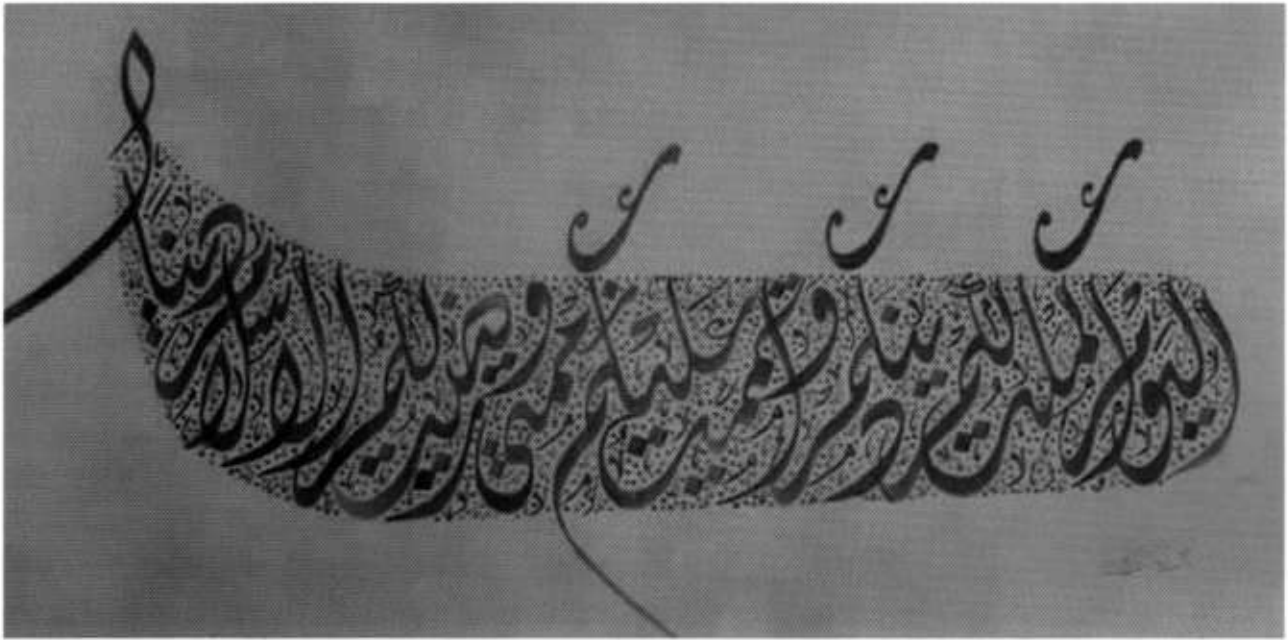 اليوم أكملت لكم دينكم وأتممت عليكم نعمتي ورضيت لكم الإسلام دينا